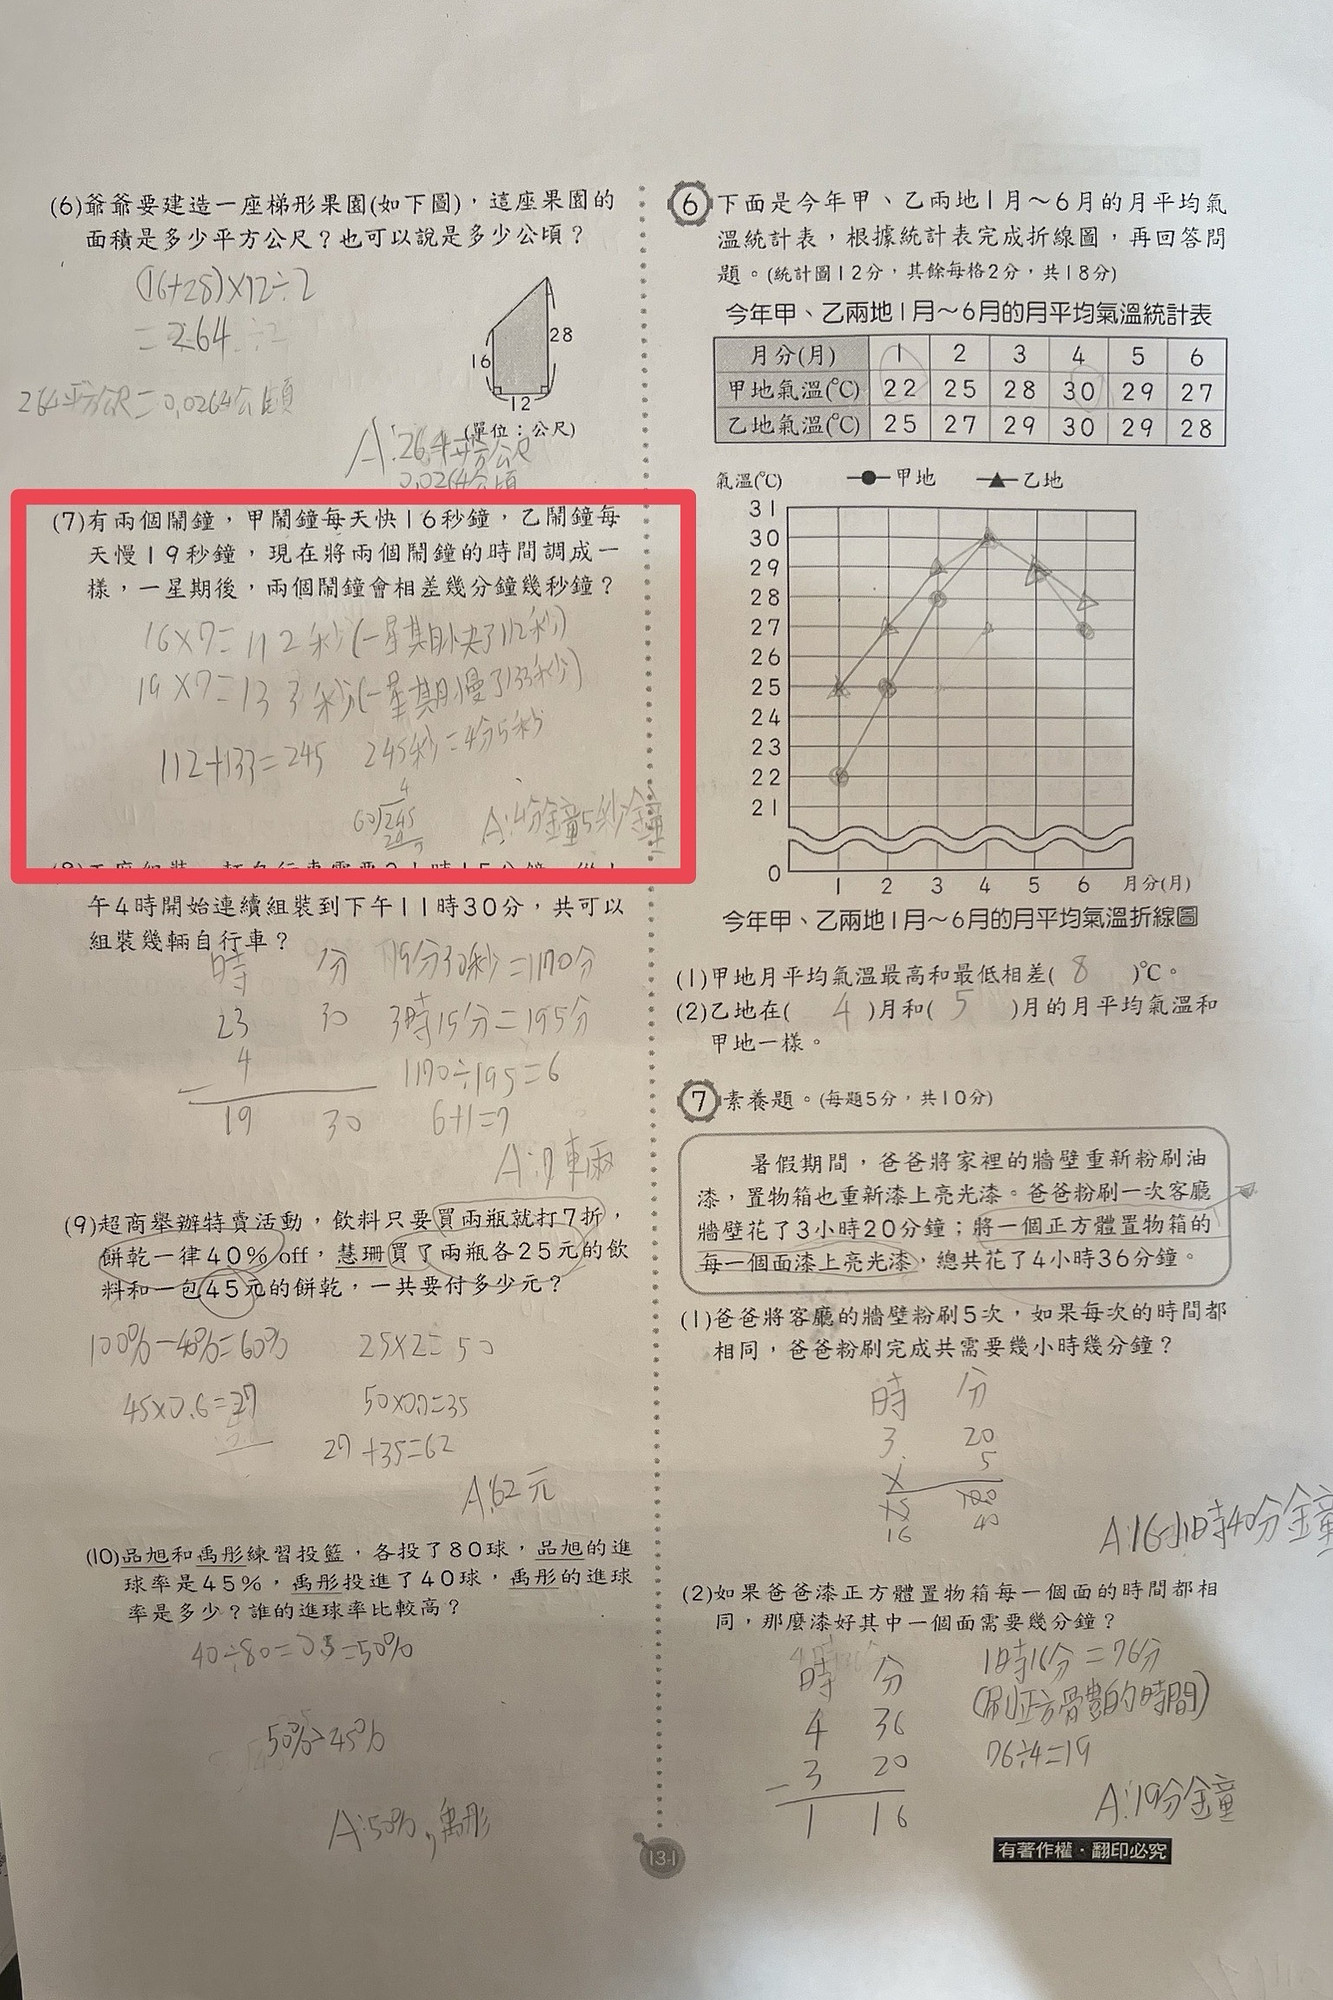 (6)爺爺要建造一座梯形果園(如下圖)，這座果園的
面積是多少平方公尺？也可以說是多少公頃？
(16+28)×12÷2
=264
264平方公尺=0.0264公頃
16
28
12
(單位：公尺)
A:264平方公尺
0.0264公頃
(7)有兩個鬧鐘，甲鬧鐘每天快16秒鐘，乙鬧鐘每
天慢19秒鐘，現在將兩個鬧鐘的時間調成一
樣，一星期後，兩個鬧鐘會相差幾分鐘幾秒鐘？
16×7=112秒(一星期快了112秒)
19×7=133秒(一星期慢了133秒)
112+133=245 245秒=4分5秒
4
60)245
240
5
A:4分鐘5秒鐘
午4時開始連續組裝到下午11時30分，共可以
組裝幾輛自行車？
時 分 19分30秒=1170分
23 30 3時15分=195分
4 1170÷195=6
19 30 6+1=7
A:7輛
(9)超商舉辦特賣活動，飲料只要買兩瓶就打7折，
餅乾一律40% off，慧珊買了兩瓶各25元的飲
料和一包45元的餅乾，一共要付多少元？
100%-40%=60% 25×2=50
45×0.6=27 50×0.7=35
27+35=62
A:62元
(10)品旭和禹彤練習投籃，各投了80球，品旭的進
球率是45%，禹彤投進了40球，禹彤的進球
率是多少？誰的進球率比較高？
40÷80=0.5=50%
50%>45%
A:50%，禹彤
6 下面是今年甲、乙兩地1月～6月的月平均氣
溫統計表，根據統計表完成折線圖，再回答問
題。(統計圖12分，其餘每格2分，共18分)
今年甲、乙兩地1月～6月的月平均氣溫統計表
月分(月) 1 2 3 4 5 6
甲地氣溫(℃) 22 25 28 30 29 27
乙地氣溫(℃) 25 27 29 30 29 28
氣溫(℃) 甲地 乙地
31
30
29
28
27
26
25
24
23
22
21
0
1 2 3 4 5 6 月分(月)
今年甲、乙兩地1月～6月的月平均氣溫折線圖
(1)甲地月平均氣溫最高和最低相差( 8 )℃。
(2)乙地在( 4 )月和( 5 )月的月平均氣溫和
甲地一樣。
7 素養題。(每題5分，共10分)
暑假期間，爸爸將家裡的牆壁重新粉刷油
漆，置物箱也重新漆上亮光漆。爸爸粉刷一次客廳
牆壁花了3小時20分鐘；將一個正方體置物箱的
每一個面漆上亮光漆，總共花了4小時36分鐘。
(1)爸爸將客廳的牆壁粉刷5次，如果每次的時間都
相同，爸爸粉刷完成共需要幾小時幾分鐘？
時 分
3 20
× 5
15 100
16 40
A:16小時40分鐘
(2)如果爸爸漆正方體置物箱每一個面的時間都相
同，那麼漆好其中一個面需要幾分鐘？
時 分 1時16分=76分
4 36 (刷正方體的時間)
- 3 20 76÷4=19
1 16 A:19分鐘
13-1
有著作權・翻印必究